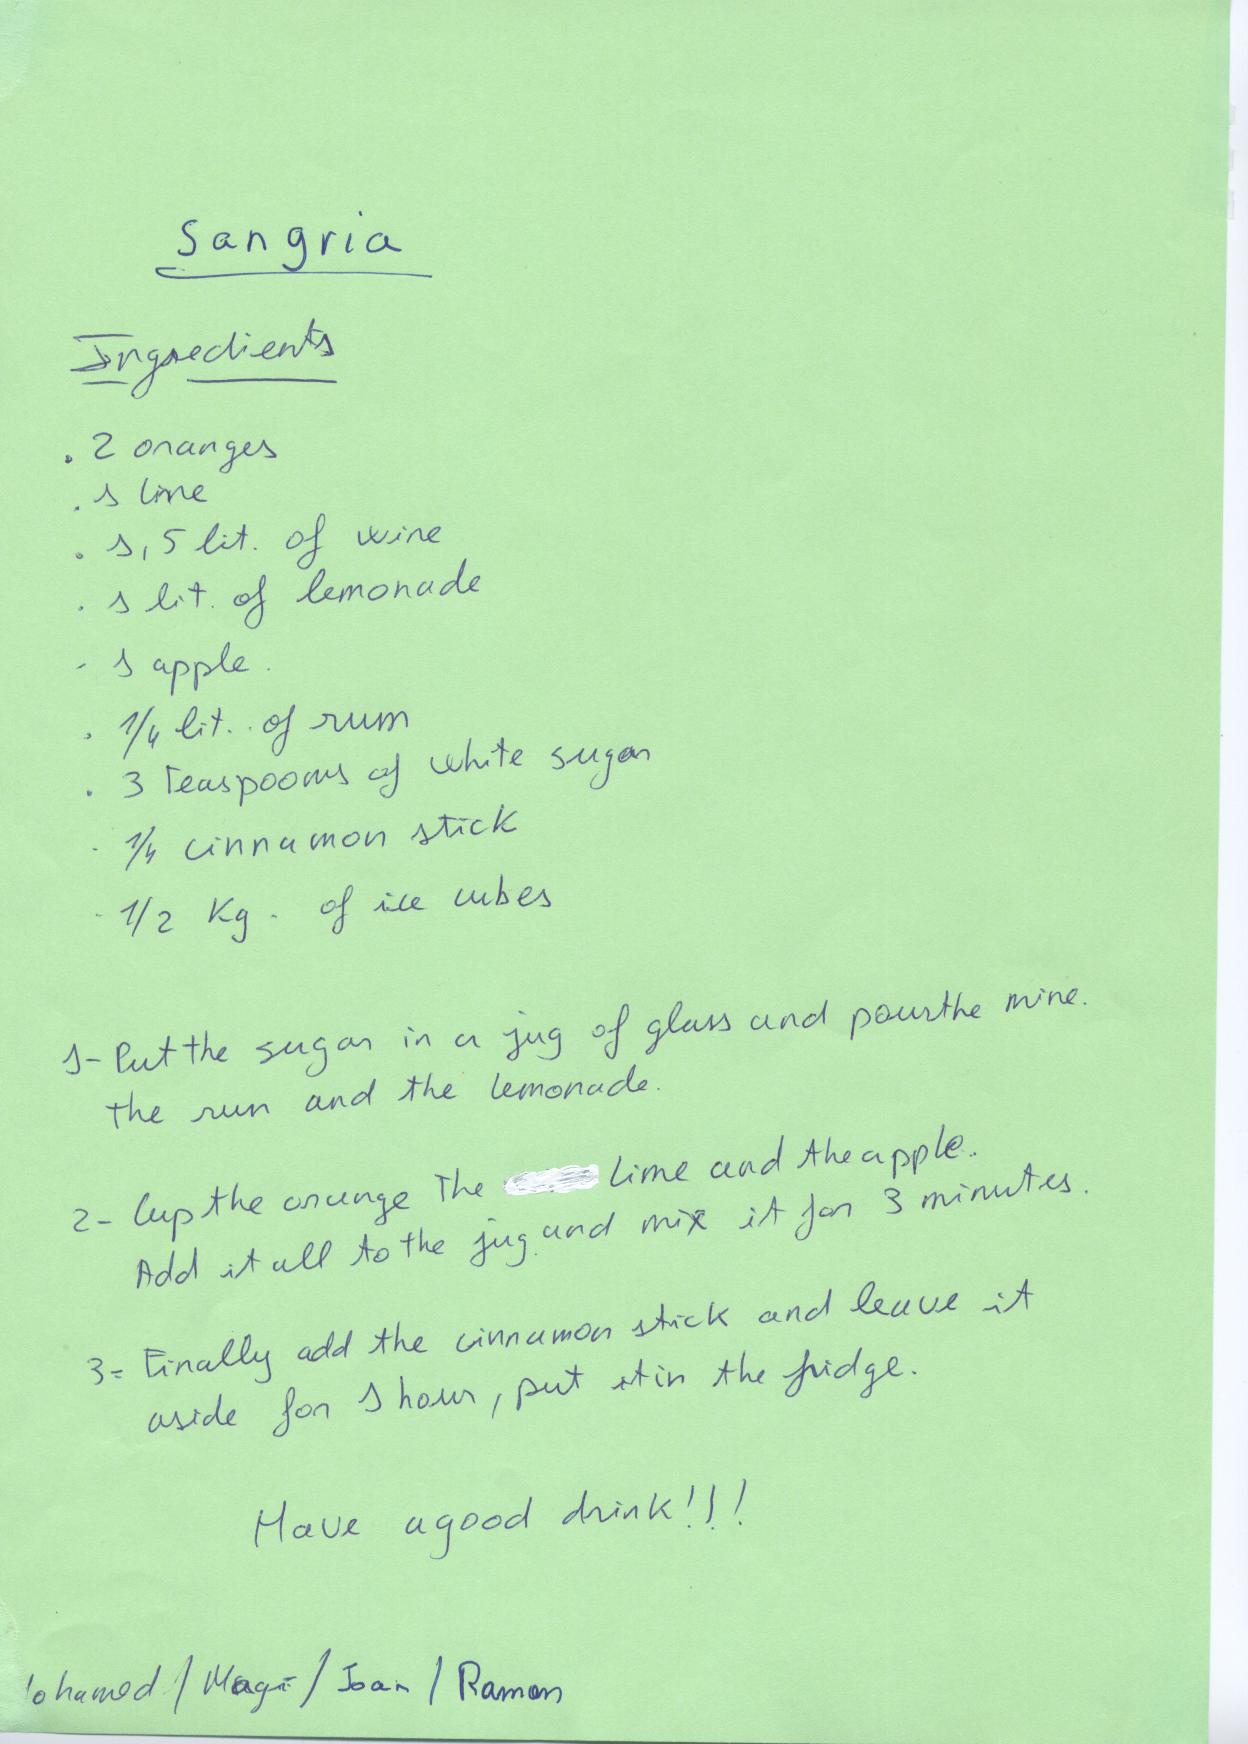 Sangria
Ingredients
. 2 oranges
. 1 lime
. 1,5 lit. of wine
. 1 lit. of lemonade
- 1 apple.
. 1/4 lit. of rum
. 3 Teaspoons of white sugar
- 1/4 cinnamon stick
- 1/2 Kg. of ice cubes
1- Put the sugar in a jug of glass and pour the mine.
the run and the lemonade.
2- Cup the orange The lime and the apple.
Add it all to the jug and mix it for 3 minutes.
3= Finally add the cinnamon stick and leave it
aside for 1 hour, put it in the fridge.
Have a good drink!!!
Mohamed / Magi / Joan / Ramon